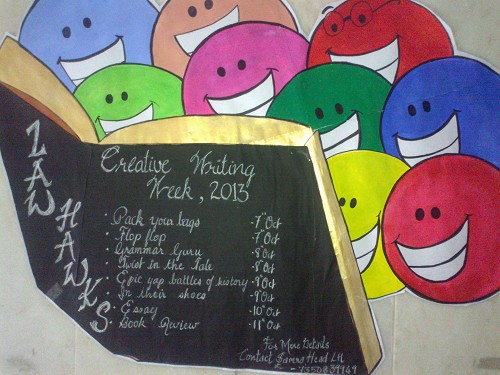 LAW HAWKS
Creative Writing
Week, 2013
· Pack your bags - 7th Oct
· Flop flop - 7th Oct
· Grammar Guru - 8 Oct
· Twist in the Tale - 8th Oct
· Epic gap battles of history - 9th Oct
· In their shoes - 9th Oct
· Essay - 10th Oct
· Book Review - 11th Oct
For More Details
Contact Head